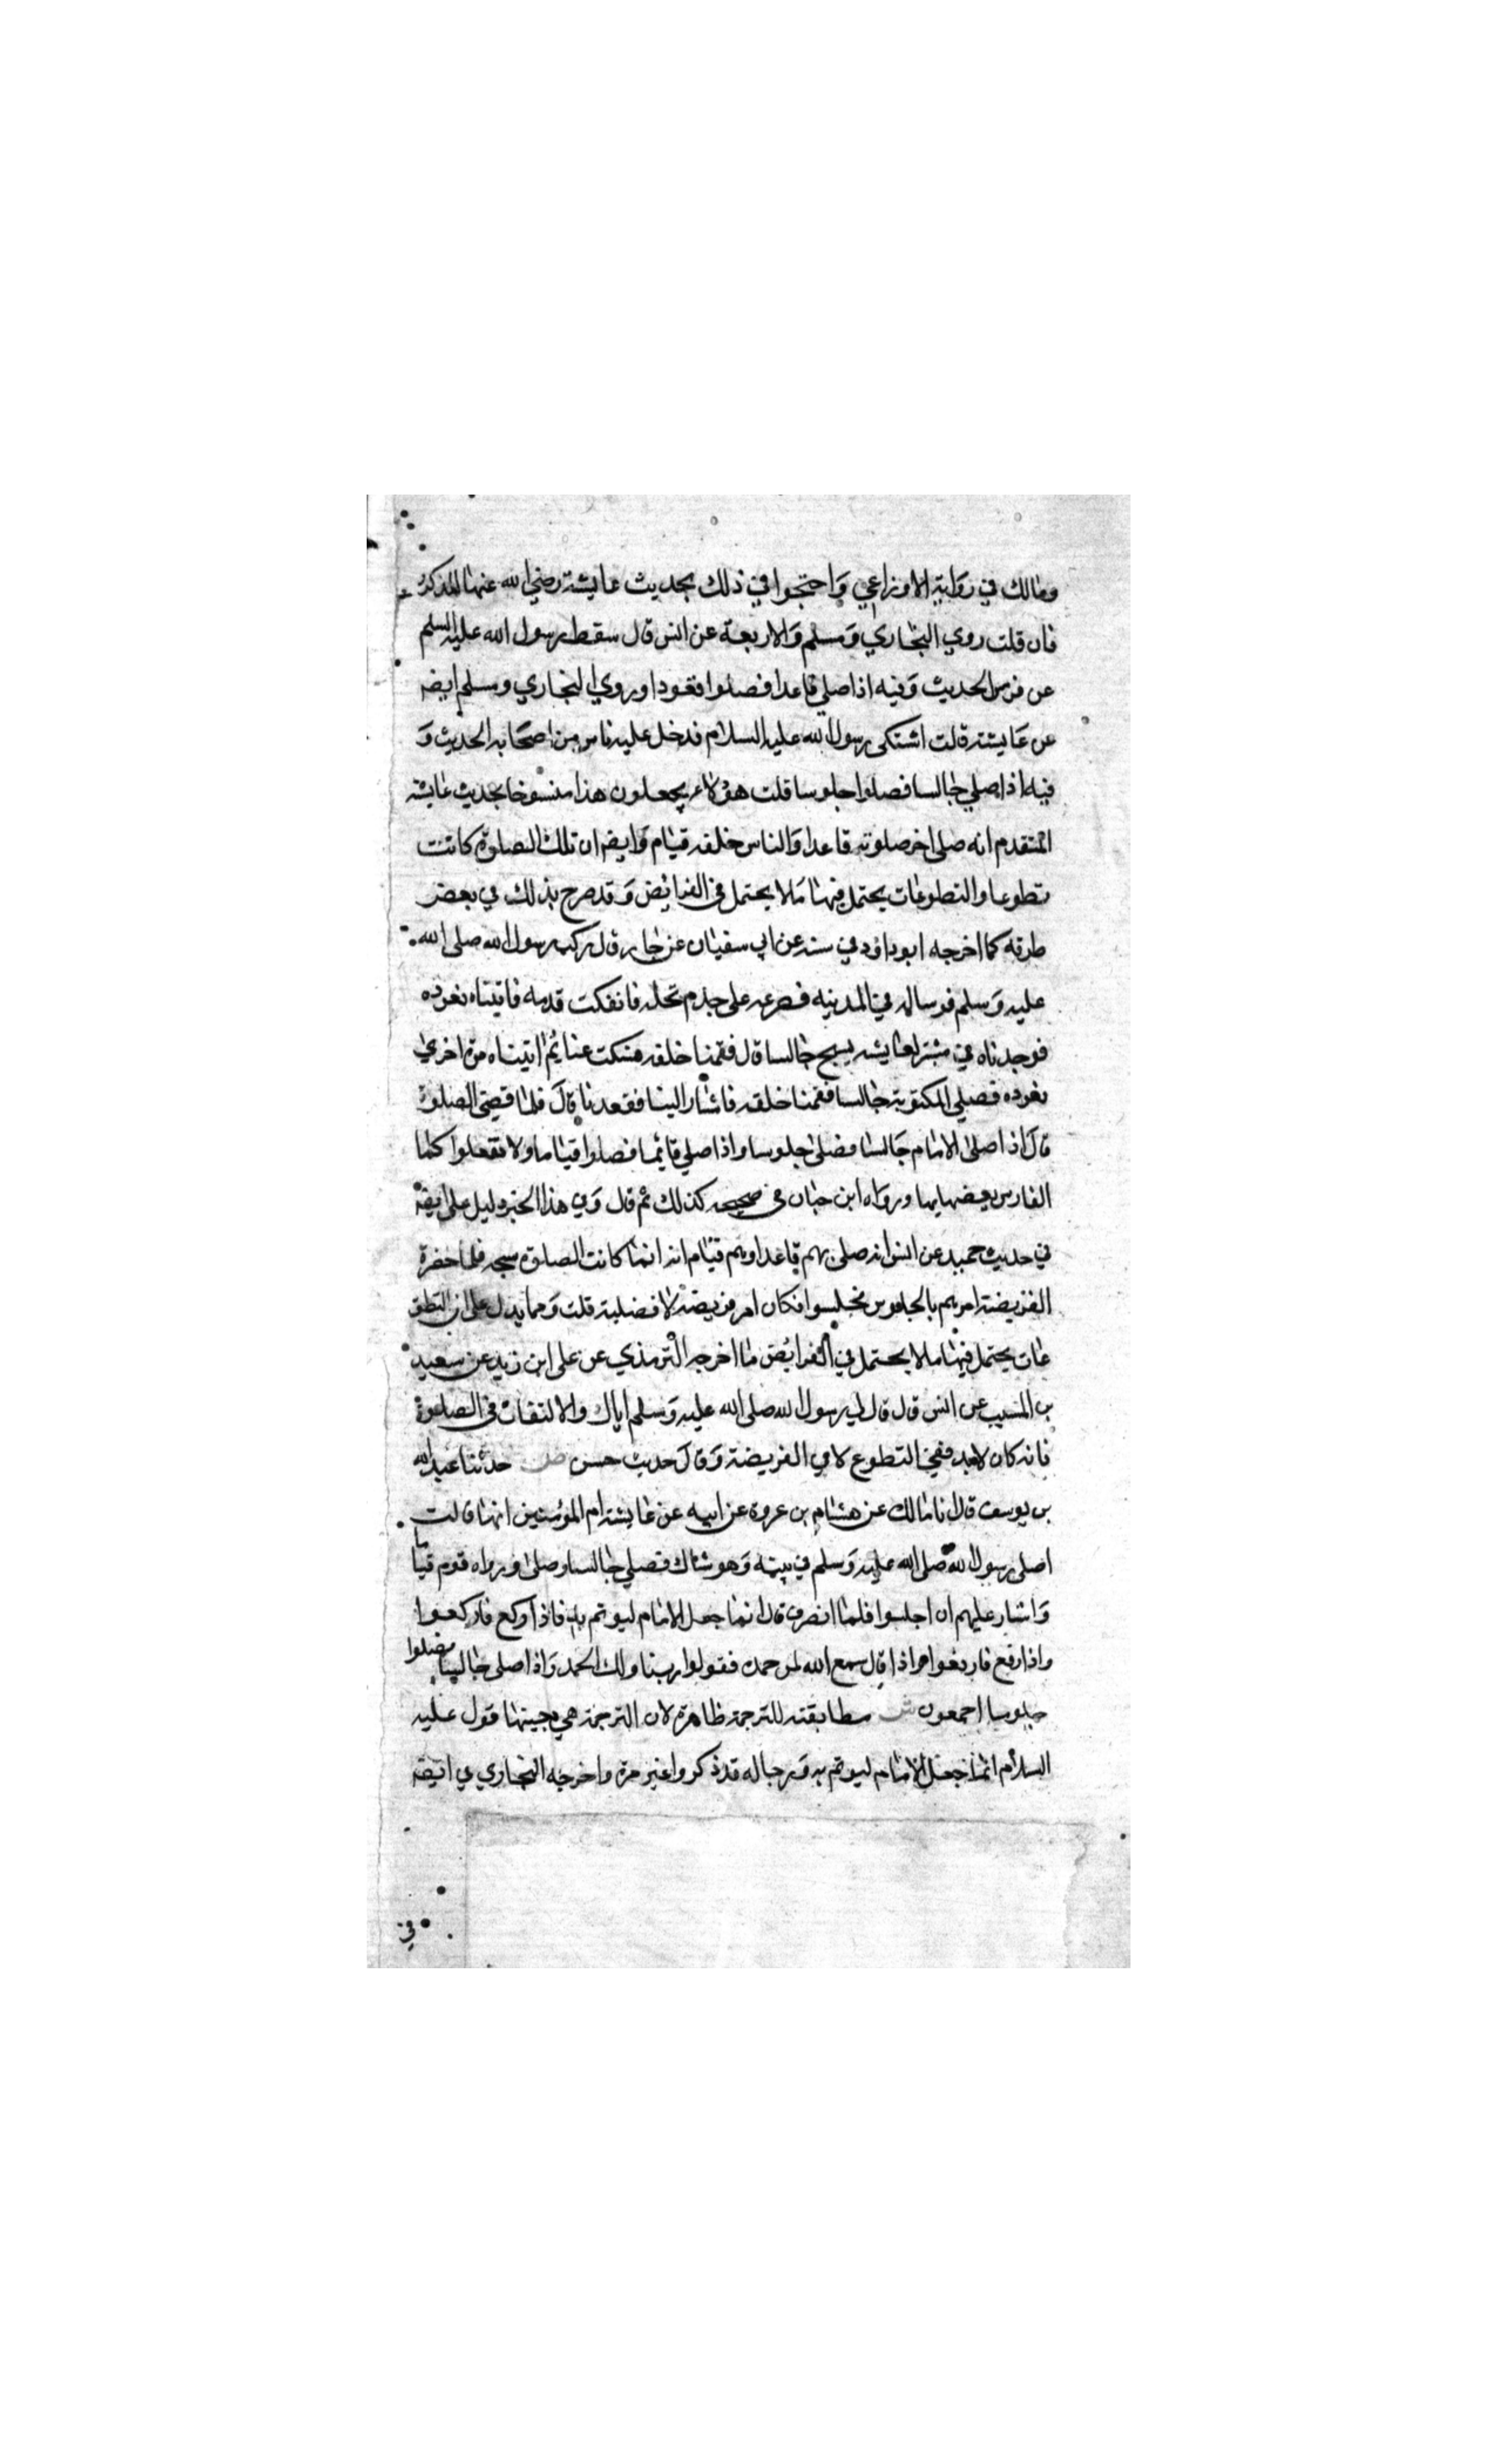 ومالك في رواية الاوزاعي واحتجوا في ذلك بحديث عايشة رضي الله عنها المذكور
فان قلت روي البخاري ومسلم والاربعة عن انس قال سقط رسول الله عليه السلم
عن فرس الحديث وفيه اذا صلي قاعدا فصلوا قعودا وروي البخاري ومسلم ايضه
عن عايشة قالت اشتكى رسول الله عليه السلام فدخل عليه ناس من اصحابه الحديث و
فيه اذا صلي جالسا فصلوا جلوسا قلت هؤلاء يجعلون هذا منسوخا بحديث عايشه
المتقدم انه صلى اخر صلوته قاعدا والناس خلفه قيام وايضه ان تلك الصلوة كانت
تطوعا والتطوعات يحتمل فيها ما لا يحتمل في الفرائض وقد صرح بذلك في بعض
طرقه كما اخرجه ابو داود في سننه عن ابي سفيان عن جابر قال ركب رسول الله صلى الله
عليه وسلم فرسا له في المدينه فصرعه على جذم نخله فانفكت قدمه فاتيناه نعوده
فوجدناه في مشربة لعايشه يسبح جالسا قال فقمنا خلفه فسكت عنا ثم اتيناه مرة اخري
نعوده فصلي المكتوبة جالسا فقمنا خلفه فاشار الينا فقعدنا قال فلما قضي الصلوة
قال اذا صلى الامام جالسا فصلى جلوسا واذا صلي قايما فصلوا قياما ولا تفعلوا كما
الفارس بعضها يها ورواه ابن حبان في صحيحه كذلك ثم قال وفي هذا الخبر دليل على ايضه
في حديث حميد عن انس انه صلى بهم قاعدا وهم قيام انه انما كانت الصلوة سبحه فلما حضرة
الفريضة امرهم بالجلوس فجلسوا فكان امر فريضه لا فضيلة قلت ومما يدل على ان التطو
عات يحتمل فيها ما لا يحتمل في الفرايض ما اخرجه الترمذي عن على ابن زيد عن سعيد
بن المسيب عن انس قال قال لي رسول الله صلى الله عليه وسلم اياك والالتفات في الصلوة
فانه كان لابد ففي التطوع لا في الفريضة وقال حديث حسن ص حدثنا عبد الله
بن يوسف قال انا مالك عن هشام بن عروة عن ابيه عن عايشة ام المؤمنين انها قالت
اصلى رسول الله صلى الله عليه وسلم في بيته وهو شاك فصلي جالسا وصلى وراه قوم قياما
واشار عليهم ان اجلسوا فلما انصرف قال انما جعل الامام ليوتم به فاذا ركع فاركعوا
واذا رفع فارفعوا واذا قال سمع الله لمن حمده فقولوا ربنا ولك الحمد واذا صلى جالسا فصلوا
جلوسا اجمعون ش مطابقته للترجمة ظاهرة لان الترجمة هي بعينها قول عليه
السلام انما جعل الامام ليوتم به ورجاله قد ذكروا غير مرة واخرجه البخاري في ايضه
في